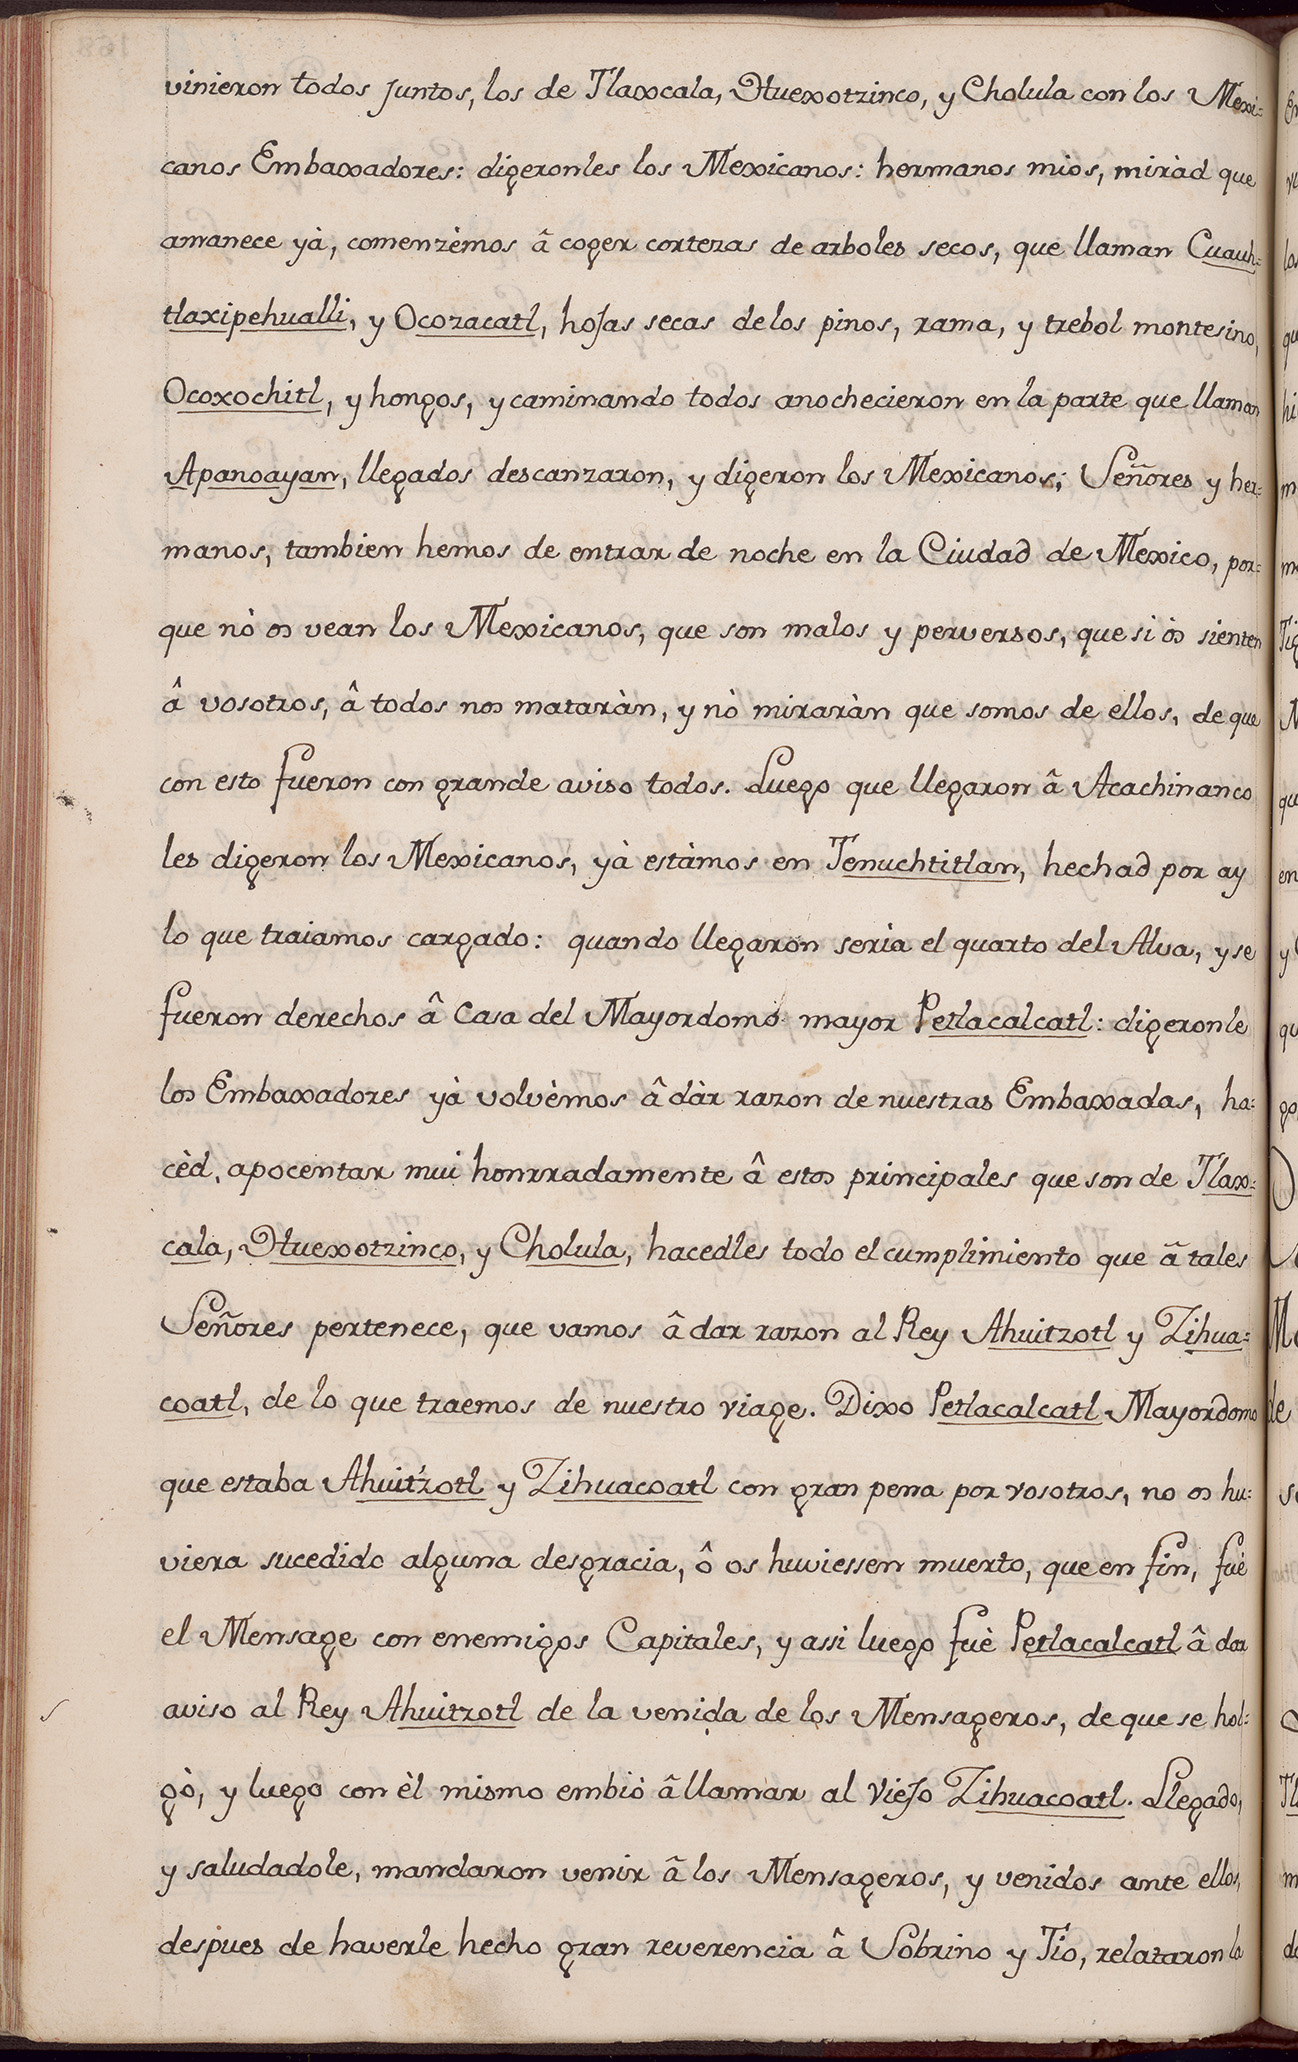 vinieron todos juntos, los de Tlaxcala, Huexotzinco, y Cholula con los Mexi=
canos Embaxadores: digeronles los Mexicanos: hermanos mios, miràd que
amanece yà, comenzèmos â coger cortezas de arboles secos, que llaman Cuauh=
tlaxipehualli, y Ocozacatl, hojas secas de los pinos, rama, y trebol montesino,
Ocoxochitl, y hongos, y caminando todos anochecieron en la parte que llaman
Apanoayan, llegados descanzaron, y digeron los Mexicanos; Señores y her=
manos, tambien hemos de entrar de noche en la Ciudad de Mexico, por=
que nò os vean los Mexicanos, que son malos y perversos, que si òs sienten
â vosotros, â todos nos mataràn, y nò miraràn que somos de ellos, de que
con esto fueron con grande aviso todos. Luego que llegaron â Acachinanco
les digeron los Mexicanos, yà estàmos en Tenuchtitlan, hechad por ay
lo que traiamos cargado: quando llegaron serìa el quarto del Alva, y se
fueron derechos â Casa del Mayordomo mayor Petlacalcatl: digeronle
los Embaxadores yà volvèmos â dàr razon de nuestras Embaxadas, ha=
cèd, apocentar mui honrradamente â estos principales que son de Tlax=
cala, Huexotzinco, y Cholula, hacedles todo el cumplimiento que â tales
Señores pertenece, que vamos â dar razon al Rey Ahuitzotl y Zihua=
coatl, de lo que traemos de nuestro viage. Dixo Petlacalcatl Mayordomo
que estaba Ahuitzotl y Zihuacoatl con gran pena por vosotros, no os hu=
viera sucedido alguna desgracia, ô os huviessen muerto, que en fin, fuè
el Mensage con enemigos Capitales, y assi luego fuè Petlacalcatl â dar
aviso al Rey Ahuitzotl de la venida de los Mensageros, de que se hol=
gò, y luego con èl mismo embiò â llamar al Viejo Zihuacoatl. Llegado,
y saludadole, mandaron venir â los Mensageros, y venidos ante ellos,
despues de haverle hecho gran reverencia â Sobrino y Tio, relataron la